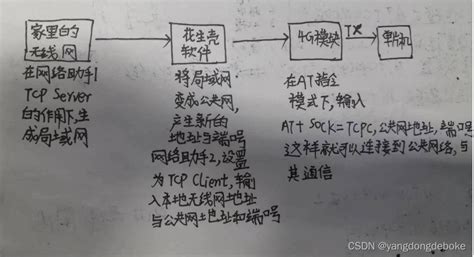 家里的
无线网
在网络助手1
TCP Server
的作用下,生
成局域网
花生壳
软件
将局域网
变成公共网,
产生新的
地址与端口号
网络助手2,设置
为TCP Client,输
入本地无线网地址
与公共网地址和端口号
4G模块
TX
单片机
在AT指令
模式下,输入
AT+SOCK=TCPC,公共网地址,端口号
这样就可以连接到公共网络,与
其通信
CSDN @yangdongdeboke